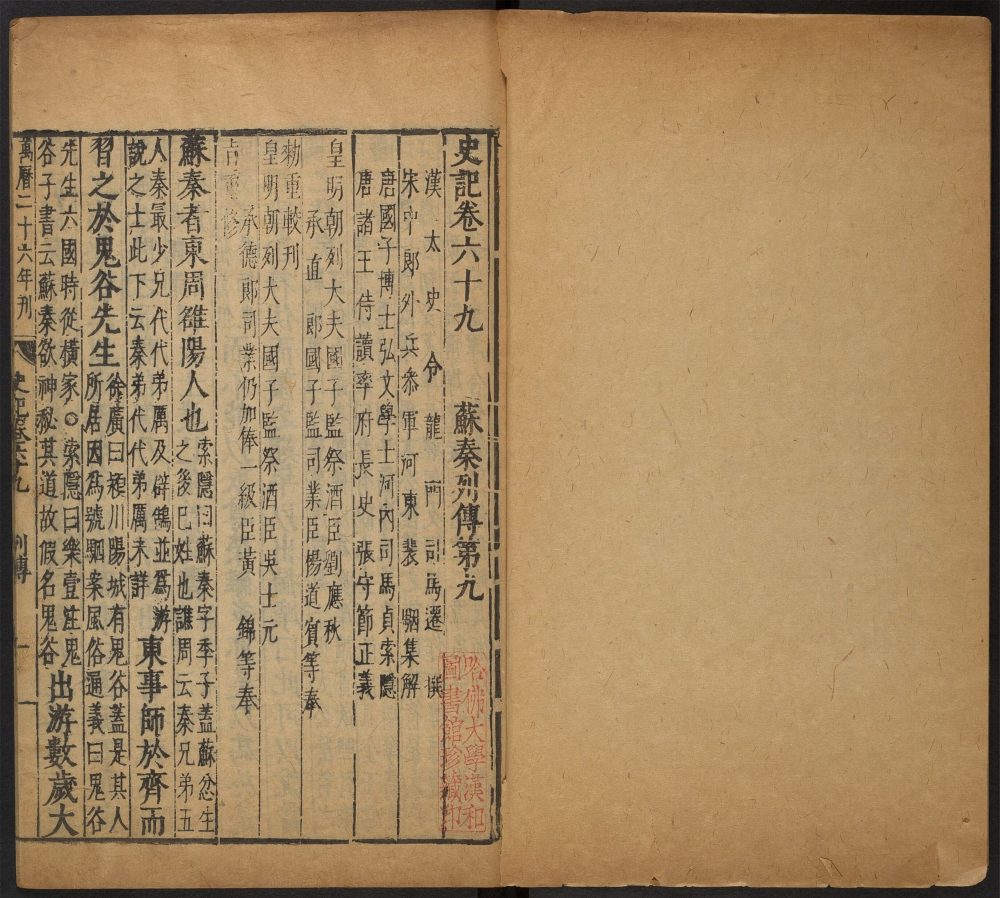 史記卷六十九　蘇秦列傳第九
漢太史令龍門司馬遷撰
宋中郎外兵參軍河東裴駰集解
唐國子博士弘文學士河內司馬貞索隱
唐諸王侍讀率府長史張守節正義
皇明朝列大夫國子監祭酒臣劉應秋
承直郎國子監司業臣楊道賓等奉
勑重較刊
皇明朝列大夫國子監祭酒臣吳士元
承德郎司業仍加俸一級臣黃錦等奉
旨重修
蘇秦者東周雒陽人也
索隱曰蘇秦字季子蓋蘇忿生
之後已姓也譙周云秦兄弟五
人秦最少兄代代弟厲及辟鵠並爲游
說之士此下云秦弟代代弟厲未詳
東事師於齊而
習之於鬼谷先生
徐廣曰潁川陽城有鬼谷蓋是其人
所居因爲號駰案風俗通義曰鬼谷
先生六國時從橫家○索隱曰樂壹注鬼
谷子書云蘇秦欲神秘其道故假名鬼谷
出游數歲大
萬曆二十六年刊
史記卷六十九
列傳
一
哈佛大學漢和
圖書館珍藏印